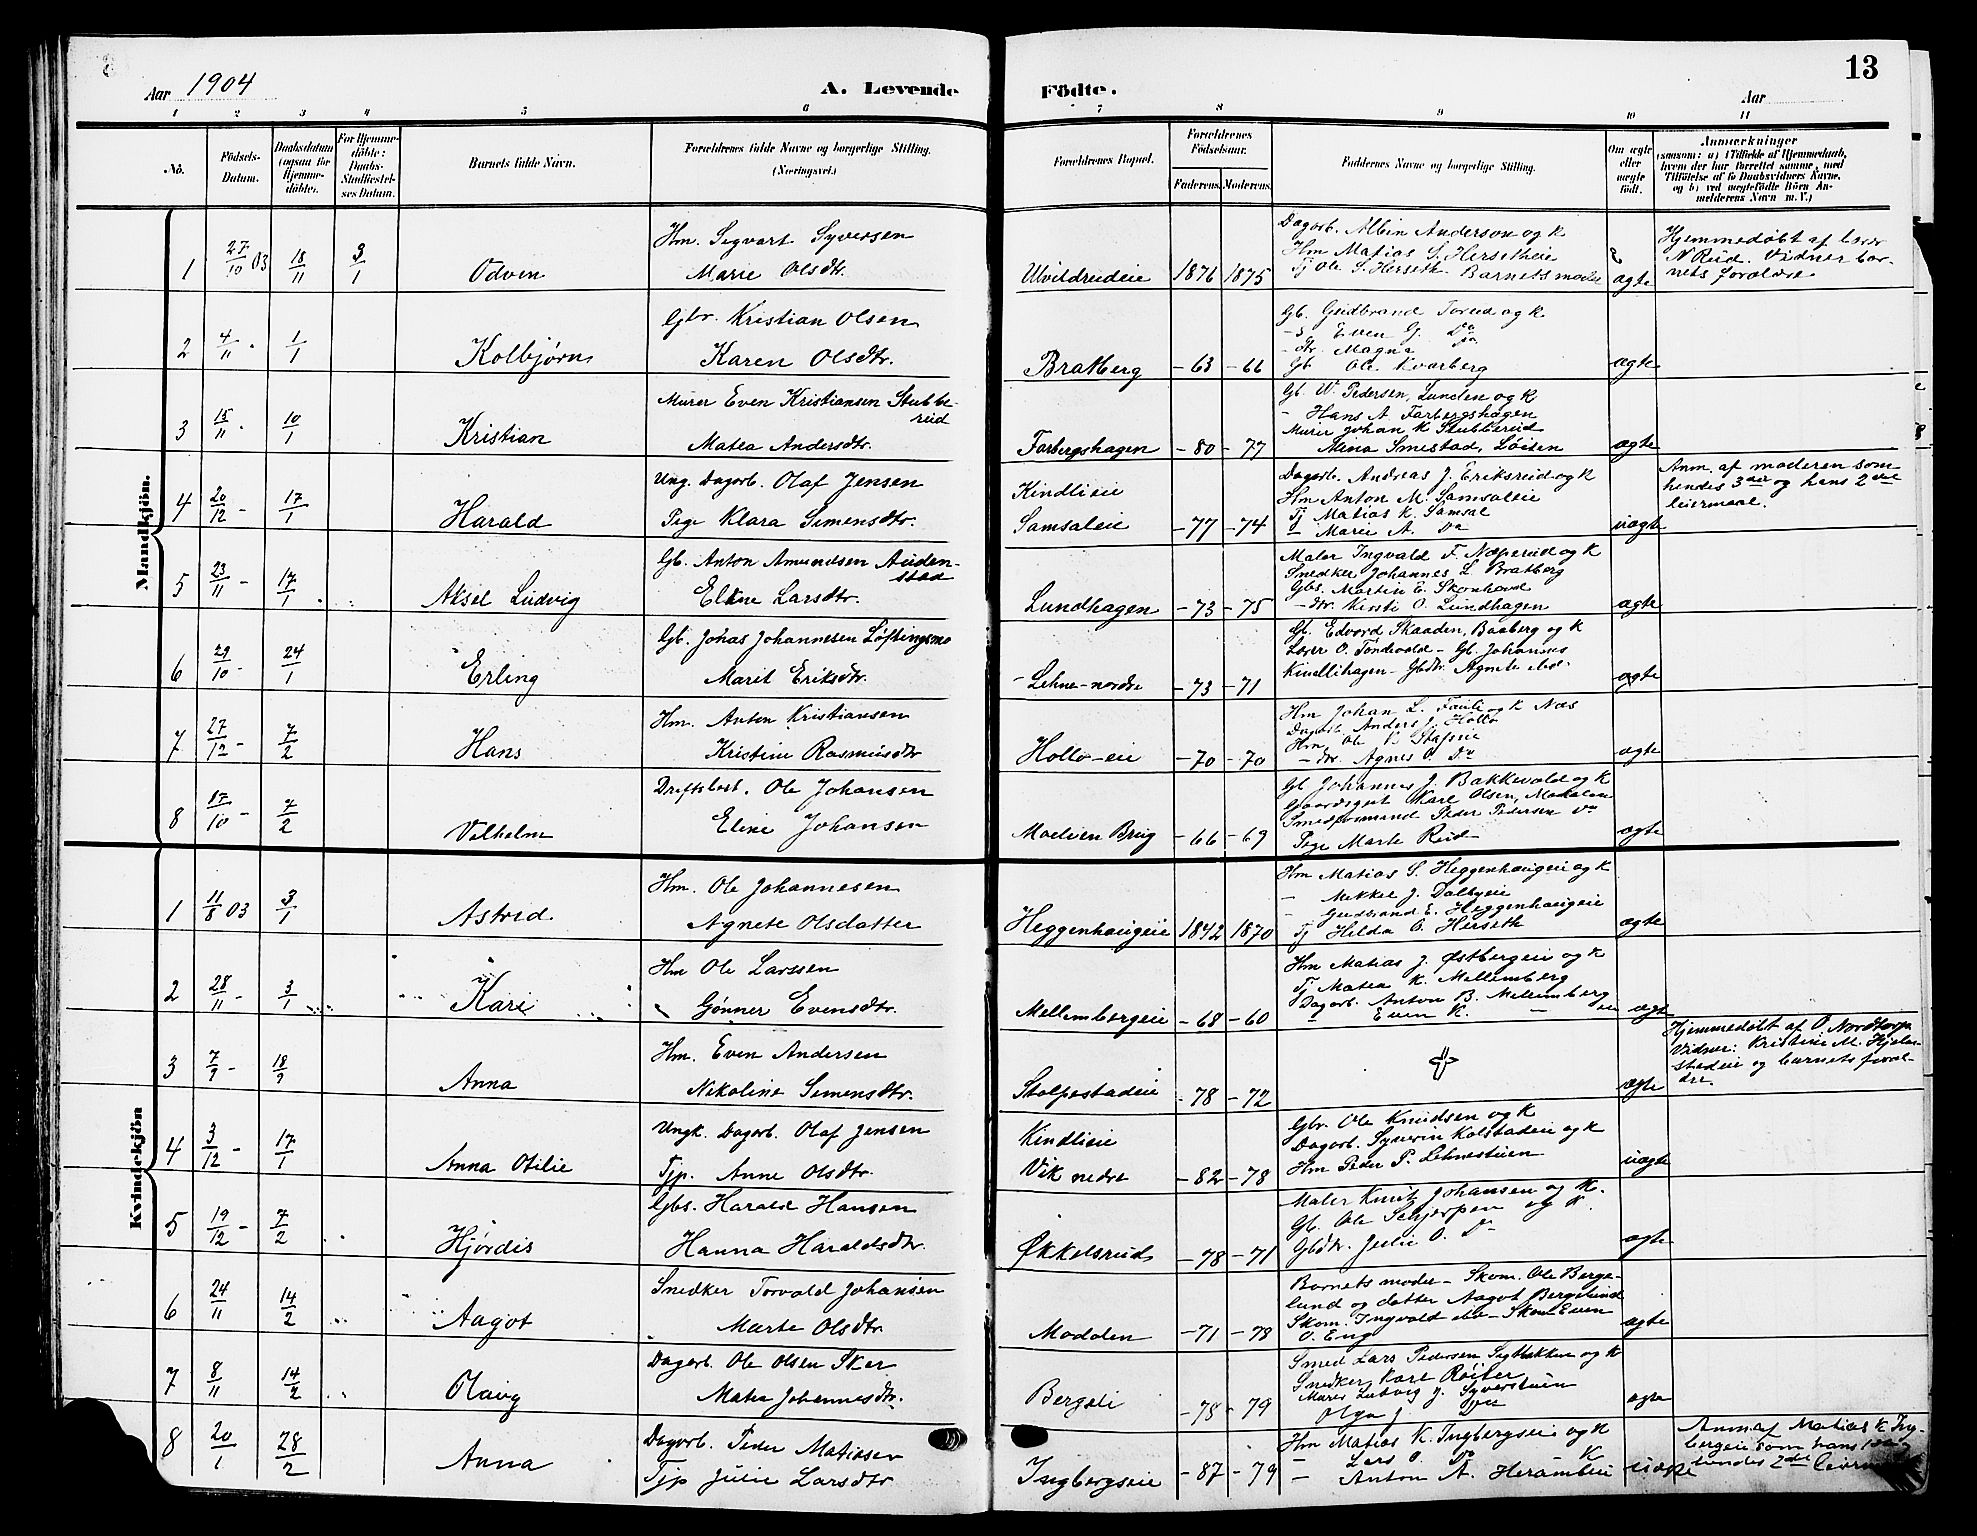 Aar 1904
A. Levende Födte.
13
Aar
1 2 3 4 5 6 7 8 9 10 11
No.
Födsels-Datum.
Daabsdatum (ogsaa for Hjemmedöbte).
For Hjemmedöbte: Daabs-Stadfæstelses Datum.
Barnets fulde Navn.
Forældrenes fulde Navne og borgerlige Stilling. (Næringsvei.)
Forældrenes Bopæl.
Forældrenes Födselsaar.
Faderens. Moderens.
Faddernes Navne og borgerlige Stilling.
Om ægte eller uægte födt.
Anmærkninger
(saasom: a) i Tilfælde af Hjemmedaab, hvem der har forrettet samme, med Tilföielse af to Daabsvidners Navne, og b) ved uægtefödte Börn Anmelderens Navn m. V.)
Mandkjön.
1 27/10 03 18/11 3/1 Odven
Hm. Sigvart Syversen
Marie Olsdtr.
Ulvildrudeie 1876 1875
Dagarb. Albin Anderson og k
Hm Matias S. Hersetheie
Tj Ole S. Herseth Barnets moder
ægte
Hjemmedøbt af lærer
N Reid. Vidner bar-
nets forældre
2 4/11 - 1/1 Kolbjørn
Gbr. Kristian Olsen
Karen Olsdtr.
Bratberg -63 -66
Gb. Gudbrand Torud og k
-s Even G. Do
-dtr. Magna Do
Gb Ole Kvarberg
ægte
3 15/11 - 10/1 Kristian
Murer Even Kristiansen Stubbe-
rud
Matea Andersdtr.
Farbergshagen -80 -77
Gb. W. Pedersen, Lunden og k
- Hans A. Farbergshagen
Murer Johan K Stubberud
Mina Smestad, Løiten
ægte
4 20/12 - 17/1 Harald
Ung. Dagarb. Olaf Jensen
Pige Klara Simensdtr.
Kindlieie
Samsaleie -77 -74
Dagarb. Andreas J. Eriksrud og k
Hm Anton M. Samsaleie
Tj Matias K. Samsal
- Marie A. Do
uægte
Anm. af moderen som
hendes 3die og hans 2det
leiermaal.
5 23/11 - 17/1 Aksel Ludvig
Gb. Anton Amundsen Auden-
stad
Eline Larsdtr.
Lundhagen -73 -75
Maler Ingvald F. Næperud og k
Snedker Johannes L Bratberg
Gbs. Martin E. Skonhovd
- dtr. Kersti O. Lundhagen
ægte
6 29/10 - 24/1 Erling
Gb. Johas Johannesen Løftingsmo
Marit Eriksdtr.
Lehne-nordre -73 -71
Gb. Edvard Skaaden, Baaberg og k
Lærer O. Tondevold - Gb. Johannes
Kindlihagen - Gbdtr. Agnete ibd.
ægte
7 27/12 - 7/2 Hans
Hm. Anton Kristiansen
Kristine Rasmusdtr
Hollo-eie -70 -70
Hm Johan L. Fauli og k Næs
Dagarb. Anders J. Hollo
Hm. Ole
- dtr. Agnes O. Do
ægte
8 17/10 - 7/2 Vilhelm
Driftsbest. Ole Johansen
Eline Johansen
Modien Brug -66 -69
Gb Johannes J. Bakkevold og k
Gaardsgut Karl Olsen,
Smedformand Peder Pedersen Do
Pige Marte Rud
ægte
Kvindekjön
1 11/8 03 3/1 Astrid
Hm. Ole Johannesen
Agnete Olsdatter
Heggenhaugeie 1842 1870
Hm Matias S. Heggenhaugeie og k
- Mikkel J. Dalbyeie
- Gudbrand E. Heggenhaugeie
Tj Hilda O. Herseth
ægte
2 28/11 - 3/1 Kari
Hm Ole Larssen
Gønner Evensdtr.
Mellembergeie -68 -60
Hm Matias J. Østbergeie og k
Tj Matea K. Mellemberg
Dagarb. Anton B. Mellemberg
- Even K. -
ægte
3 7/9 - 18/9 Anna
Hm. Even Andersen
Nikoline Simensdtr.
Stolpestadeie -78 -72
ægte
Hjemmedøbt af O. Nordtorp.
Vidner: Kristine M. Hjelm-
stadeie og barnets foræl-
dre.
4 3/12 - 17/1 Anna Otilie
Ungk. Dagarb. Olaf Jensen
Tjp. Anne Olsdtr.
Kindlieie
Vik nedre -82 -78
Gbr. Ole Knudsen og k
Dagarb. Syverin Kolstadeie og k
Hm Peder P. Lehnestuen
uægte
5 19/12 - 7/2 Hjørdis
Gbs. Harald Hansen
Hanna Haraldsdtr.
Økkelsrud -78 -71
Maler Knut Johansen og k.
Gb. Ole Schjerpen og k.
Gbdtr. Julie O. Do
ægte
6 24/11 14/2 Aagot
Snedker Torvald Johansen
Marte Olsdtr.
Modden -71 -78
Barnets moder - Skom. Ole Berge-
lund og datter Aagot Bergelund
Skom. Ingvald ibd - Skom Even
O. Eng
ægte
7 8/11 14/2 Olaug
Dagarb. Ole Olsen Sker
Matea Johannesdtr.
Bergsli -78 -79
Smed Lars Pedersen og k
Snedker Karl Røiter
Murer Ludvig J. Syverstuen
Olga J. Do
ægte
8 20/1 28/2 Anna
Dagarb. Peder Matiasen
Tjp Julie Larsdtr
Ingbergseie -87 -79
Hm Matias K. Ingbergseie og k
- Lars O. Do - k
- Anton A. Herambeie
uægte
Anm af Matias K Ing-
bergeie som hans 1ste og
hendes 2det leierm